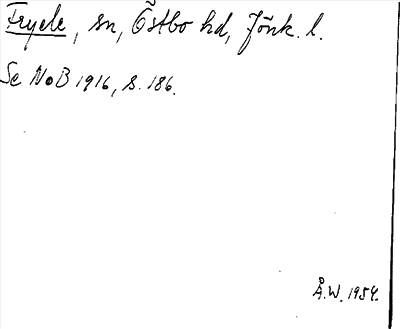 Fryele, sn, Östbo hd, Jönk. l.
Se NoB 1916, s. 186.
Å.W. 1954.